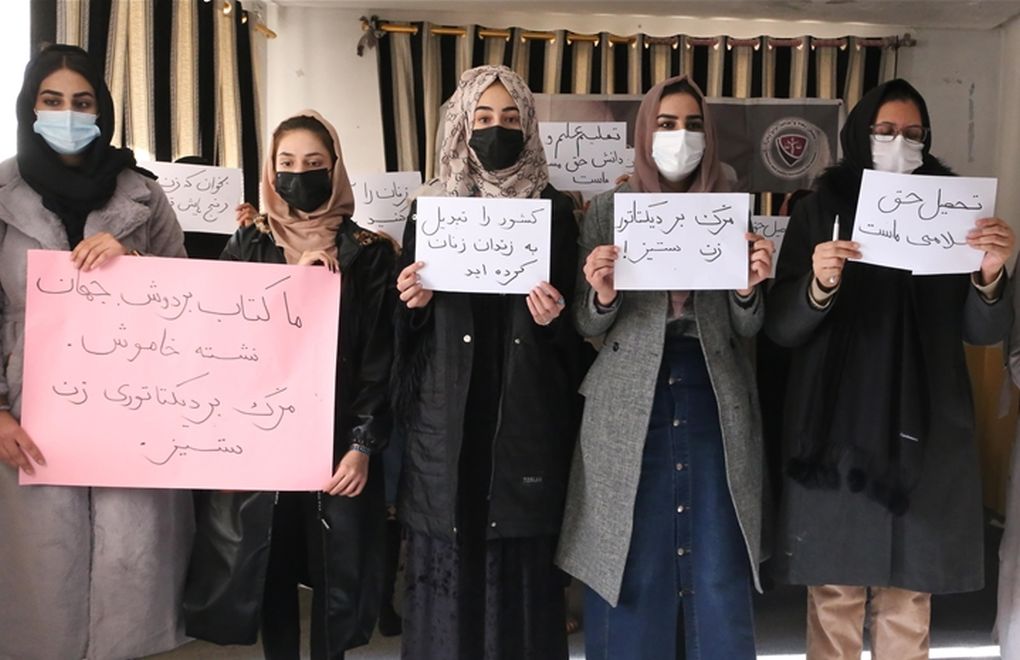 ما کتاب بردوش جهان
نشسته خاموش.
مرگ بر دیکتاتوری زن
ستیز.
بخوان که زن
و رنج پایش
زنان را
کشور را تبدیل
به زندان زنان
کرده اید
تعلیم علم و
دانش حق
ماست
مرگ بر دیکتاتوری
زن ستیز!
تحصیل حق
تحصیل حق
سلامی ماست